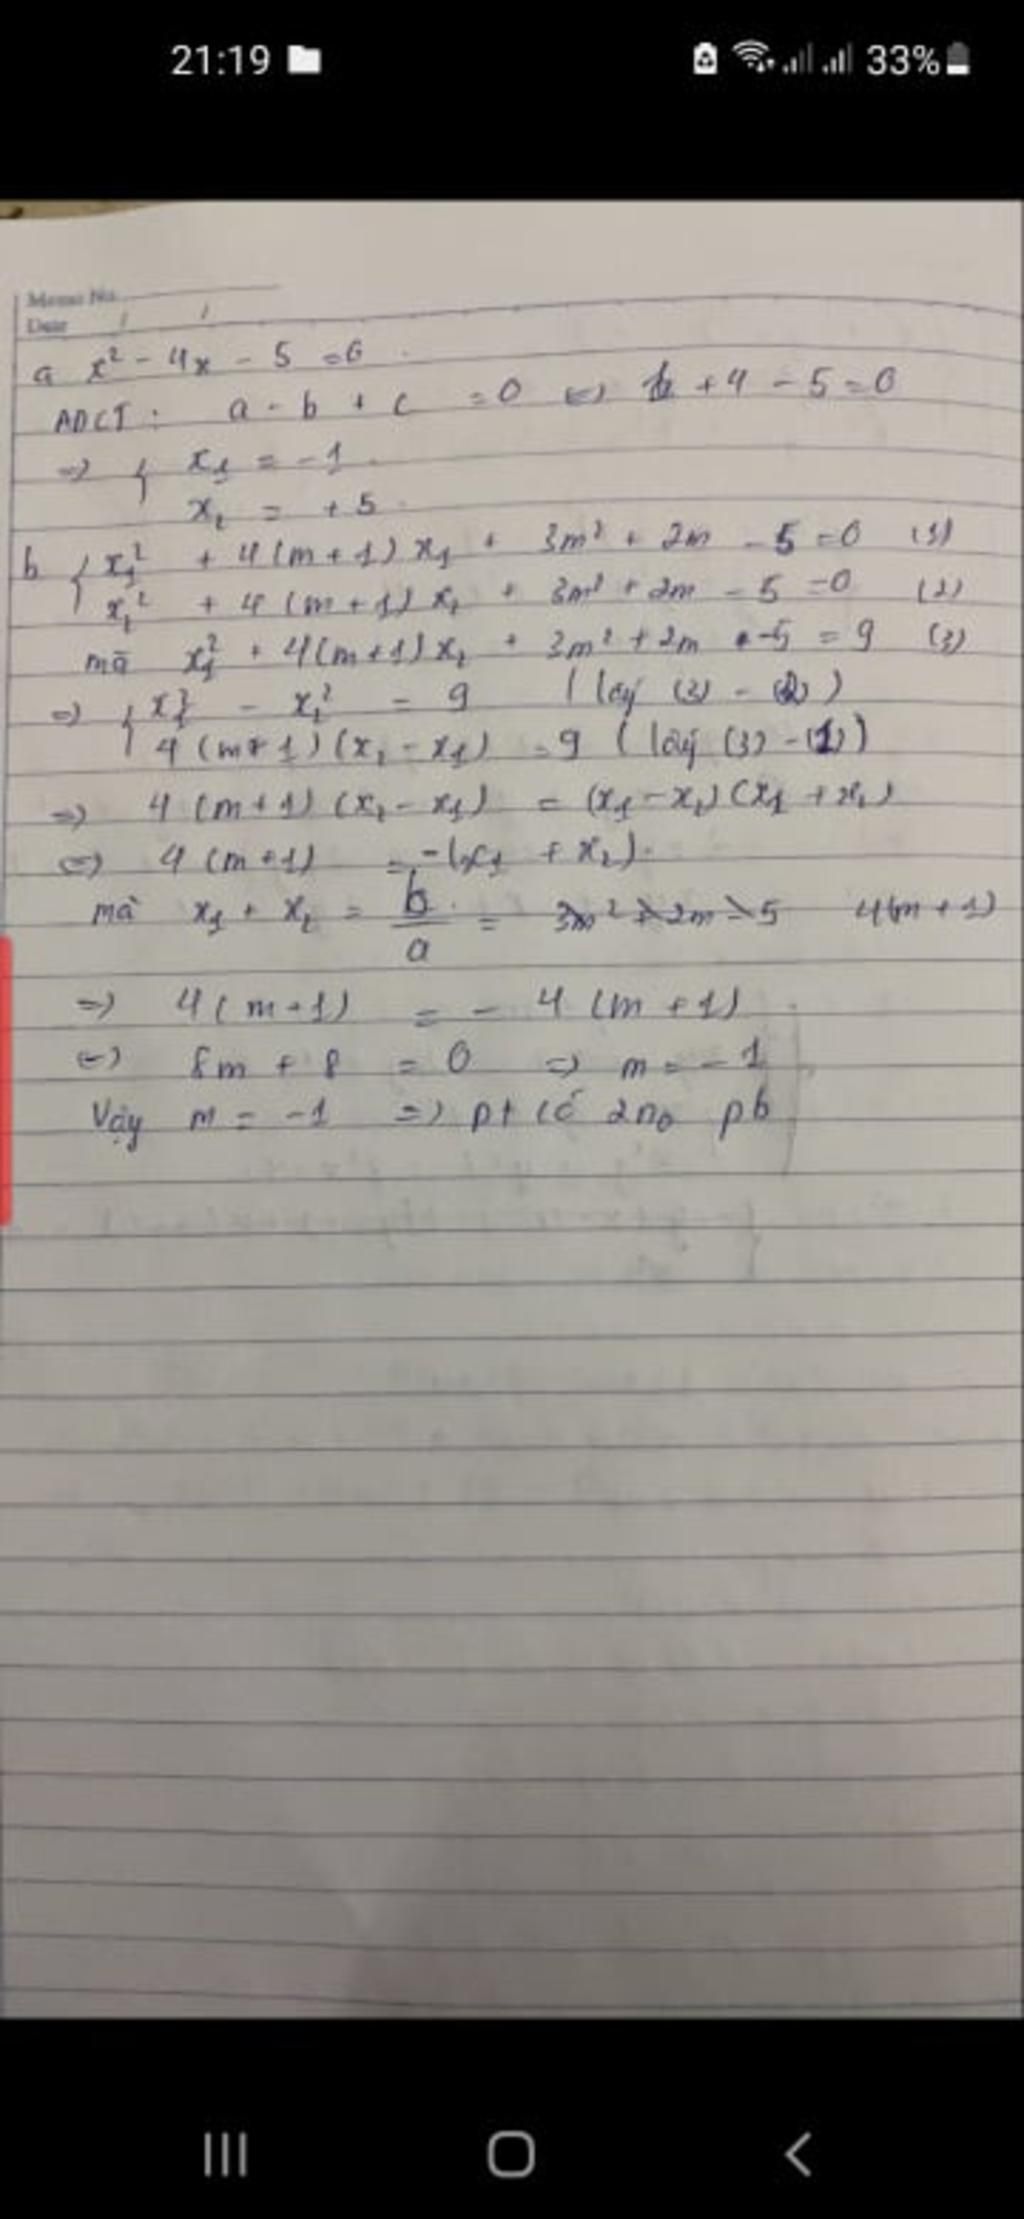 21:19 33%
Memo No.
Date / /
a x² - 4x - 5 = 0
ADCT : a - b + c = 0 <=> 1 + 4 - 5 = 0
=> { x₁ = -1
x₂ = +5
b { x₁² + 4(m+1)x₁ + 3m² + 2m - 5 = 0 (1)
x₂² + 4(m+1)x₂ + 3m² + 2m - 5 = 0 (2)
mà x₁² + 4(m+1)x₂ + 3m² + 2m - 5 = 9 (3)
=> { x₁² - x₂² = 9 (lấy (3) - (2))
4(m+1)(x₂ - x₁) = 9 (lấy (3) - (1))
=> 4(m+1)(x₂ - x₁) = (x₁ - x₂)(x₁ + x₂)
<=> 4(m+1) = -(x₁ + x₂).
mà x₁ + x₂ = b/a = 3m² + 2m - 5 4(m+1)
=> 4(m+1) = - 4(m+1)
<=> 8m + 8 = 0 => m = -1
Vậy m = -1 => pt có 2n₀ pb